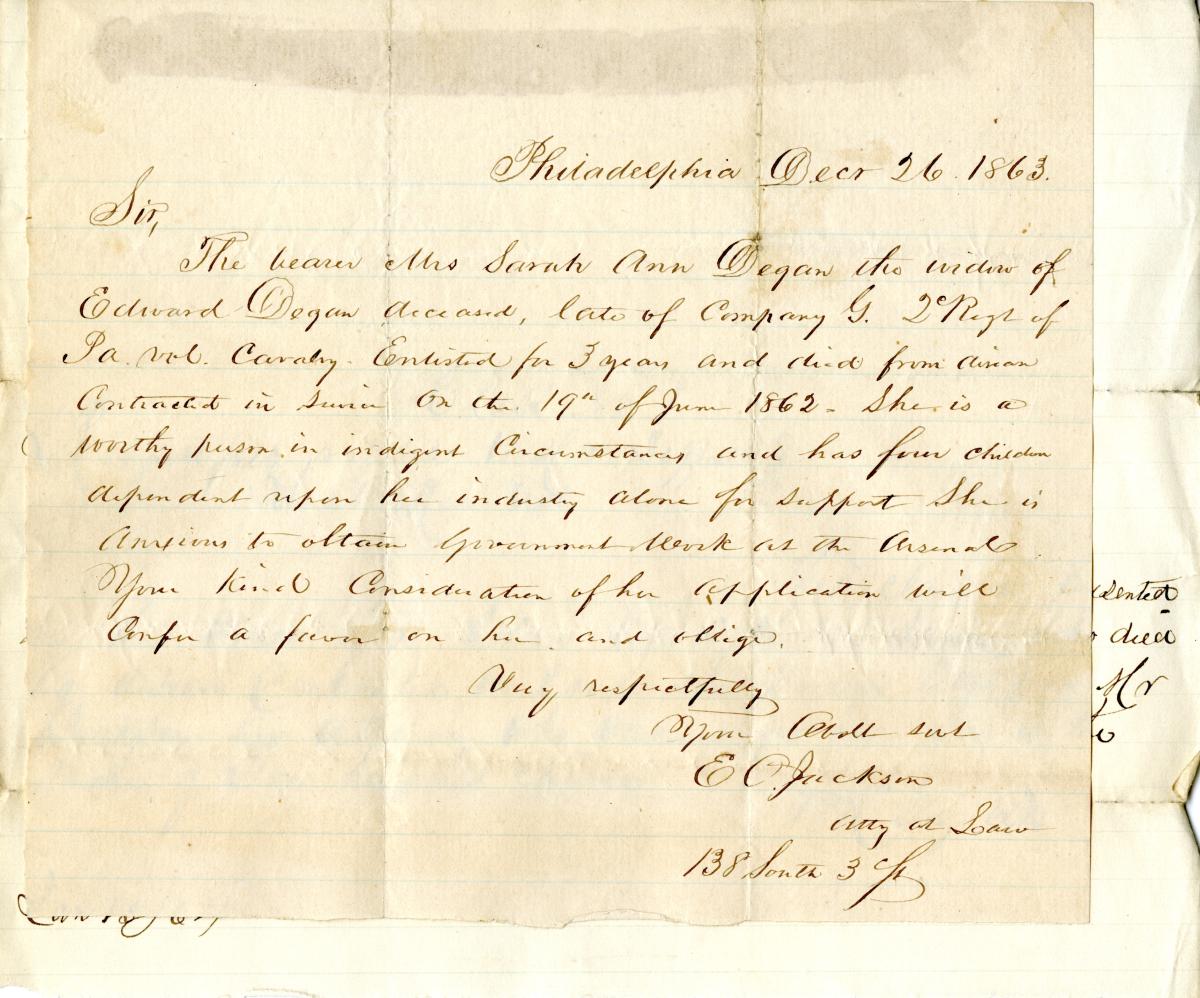 Philadelphia Decr 26. 1863.
Sir,
The bearer Mrs Sarah Ann Degan the widow of
Edward Degan deceased, late of Company G. 2d Regt of
Pa. vol. Cavalry. Enlisted for 3 years and died from disease
Contracted in service On the 19th of June 1862. She is a
worthy person in indigent Circumstances and has four children
dependent upon her industry alone for support She is
Anxious to obtain Government Work at the Arsenal
Your kind Consideration of her application will
Confer a favor on her and oblige.
Very respectfully
Your Obdt servt
E C. Jackson
Atty at Law
138 South 3d St
died
Mr